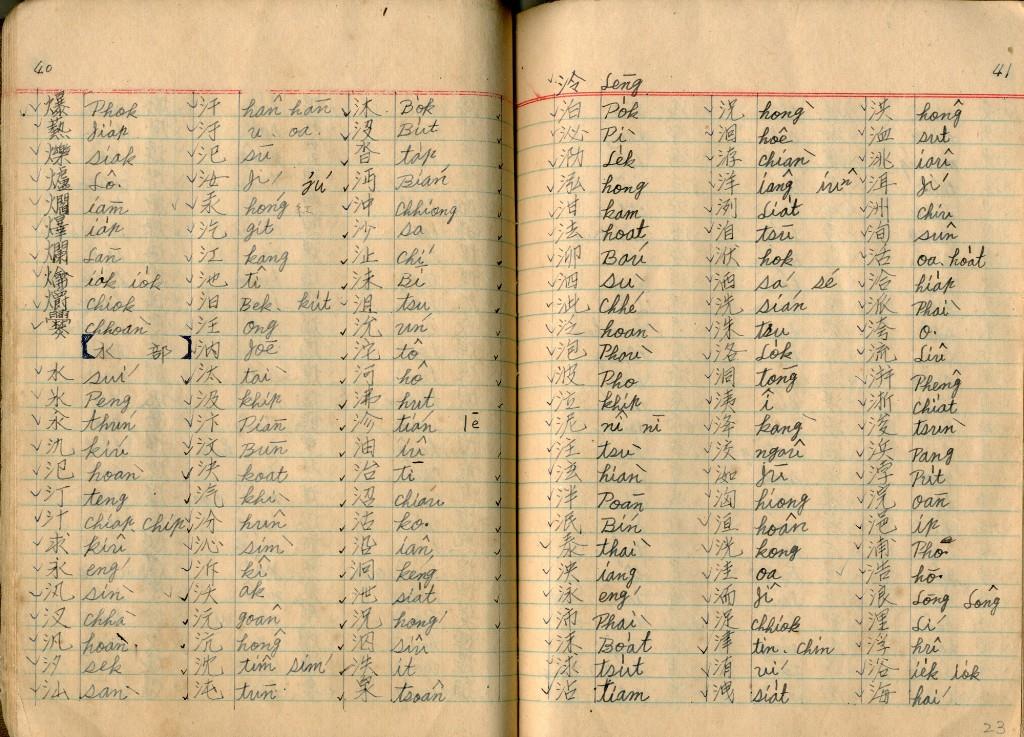 40
爆 Phok 汗 hān hān 沐 Bo̍k
熱 Jia̍p 汙 u. oa. 沒 Bu̍t
爍 siak 汜 sū 沓 ta̍p
爐 Lô. 汝 Jí jú 沔 Bián
爓 iām 汞 hóng 紅 沖 chhiong
爗 ia̍p 汔 git 沙 sa
爛 Lān 江 kang 沚 chí
爚 ia̍k io̍k 池 tî 沬 Bī
爝 chiok 汨 Bek. ku̍t 沮 tsu
爨 chhoàn 汪 ong 沄 ûn
【水 部】 汭 Joē 沱 tô
水 suí 汰 tài 河 hô
氷 Peng 汲 khip 沸 hut
汆 thún 汴 Piān 沴 tián lē
氿 kiú 汶 Būn 油 iû
氾 hoàn 決 koat 治 tī
汀 teng 汽 khì 沼 chiáu
汁 chiap. chip 汾 hûn 沽 ko.
求 kiû 沁 sìm 沿 iân
永 éng 沂 kî 泂 kéng
汛 sìn 沃 ak 泄 siat
汊 chhà 沅 goân 況 hóng
汎 hoàn. 沆 hông 泗 siû
汐 sek 沈 tîm sím 泆 it
汕 sàn 沌 tūn 泉 tsoân
41
泠 Lēng
泊 Po̍k 況 hòng 洪 hông
泌 Pì 洄 hoê 洫 sut
泐 Le̍k 洊 chiàn 洮 iaû
泓 hong 洋 iâng iûⁿ 洱 Jí
泔 kam 洌 Lia̍t 洲 chiu
法 hoat 洎 tsū 洵 sûn
泖 Baú 洑 ho̍k 活 oa. hoa̍t
泗 sù 洒 sá sé 洽 hia̍p
泚 chhé 洗 sián 派 Phài
泛 hoàn 洙 tsu 洿 o.
泡 Phàu 洛 Lo̍k 流 Liû
波 Pho 洞 tōng 洴 Phêng
泣 khip 洟 î 浙 chiat
泥 nî nī 洚 kàng 浚 tsùn
注 tsù 洨 ngaû 浜 Pang
泫 hiàn 洳 Jū 浡 Pu̍t
泮 Poān 洶 hiong 浣 oān
泯 Bín 洹 hoân 浥 ip
泰 thài 洸 kong 浦 Phó.
泱 iang 洼 oa 浩 hō.
泳 éng 洏 Jî 浪 Lōng Lông
沛 Phài 浞 chhiok 浬 Lí
沫 Boa̍t 津 tin. chin 浮 hû
沭 tsu̍t 洧 uí 浴 ie̍k io̍k
沾 tiam 洩 siat 海 hái
23